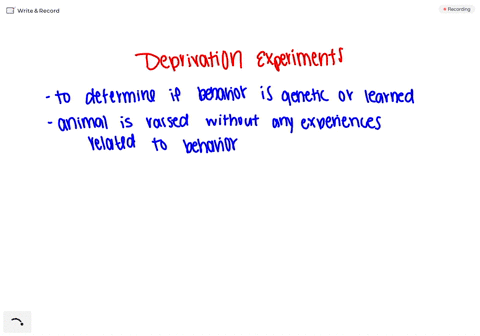 Write & Record
Recording
Deprivation Experiments
- to determine if behavior is genetic or learned
- animal is raised without any experiences
related to behavior